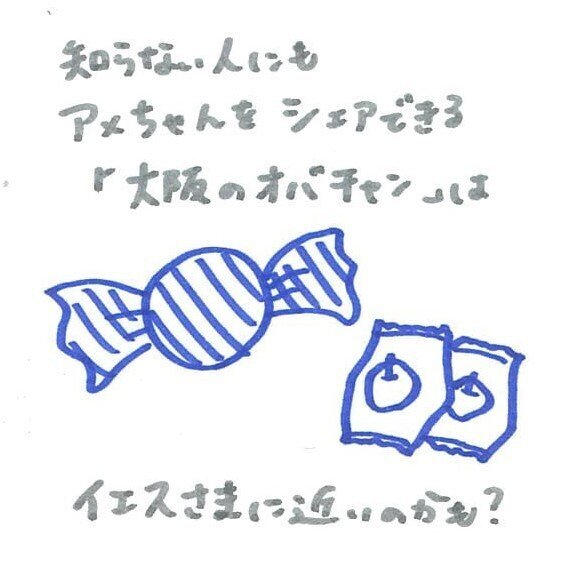 知らない人にも
アメちゃんを シェアできる
「大阪のオバチャン」は
イエスさまに近いのかも?